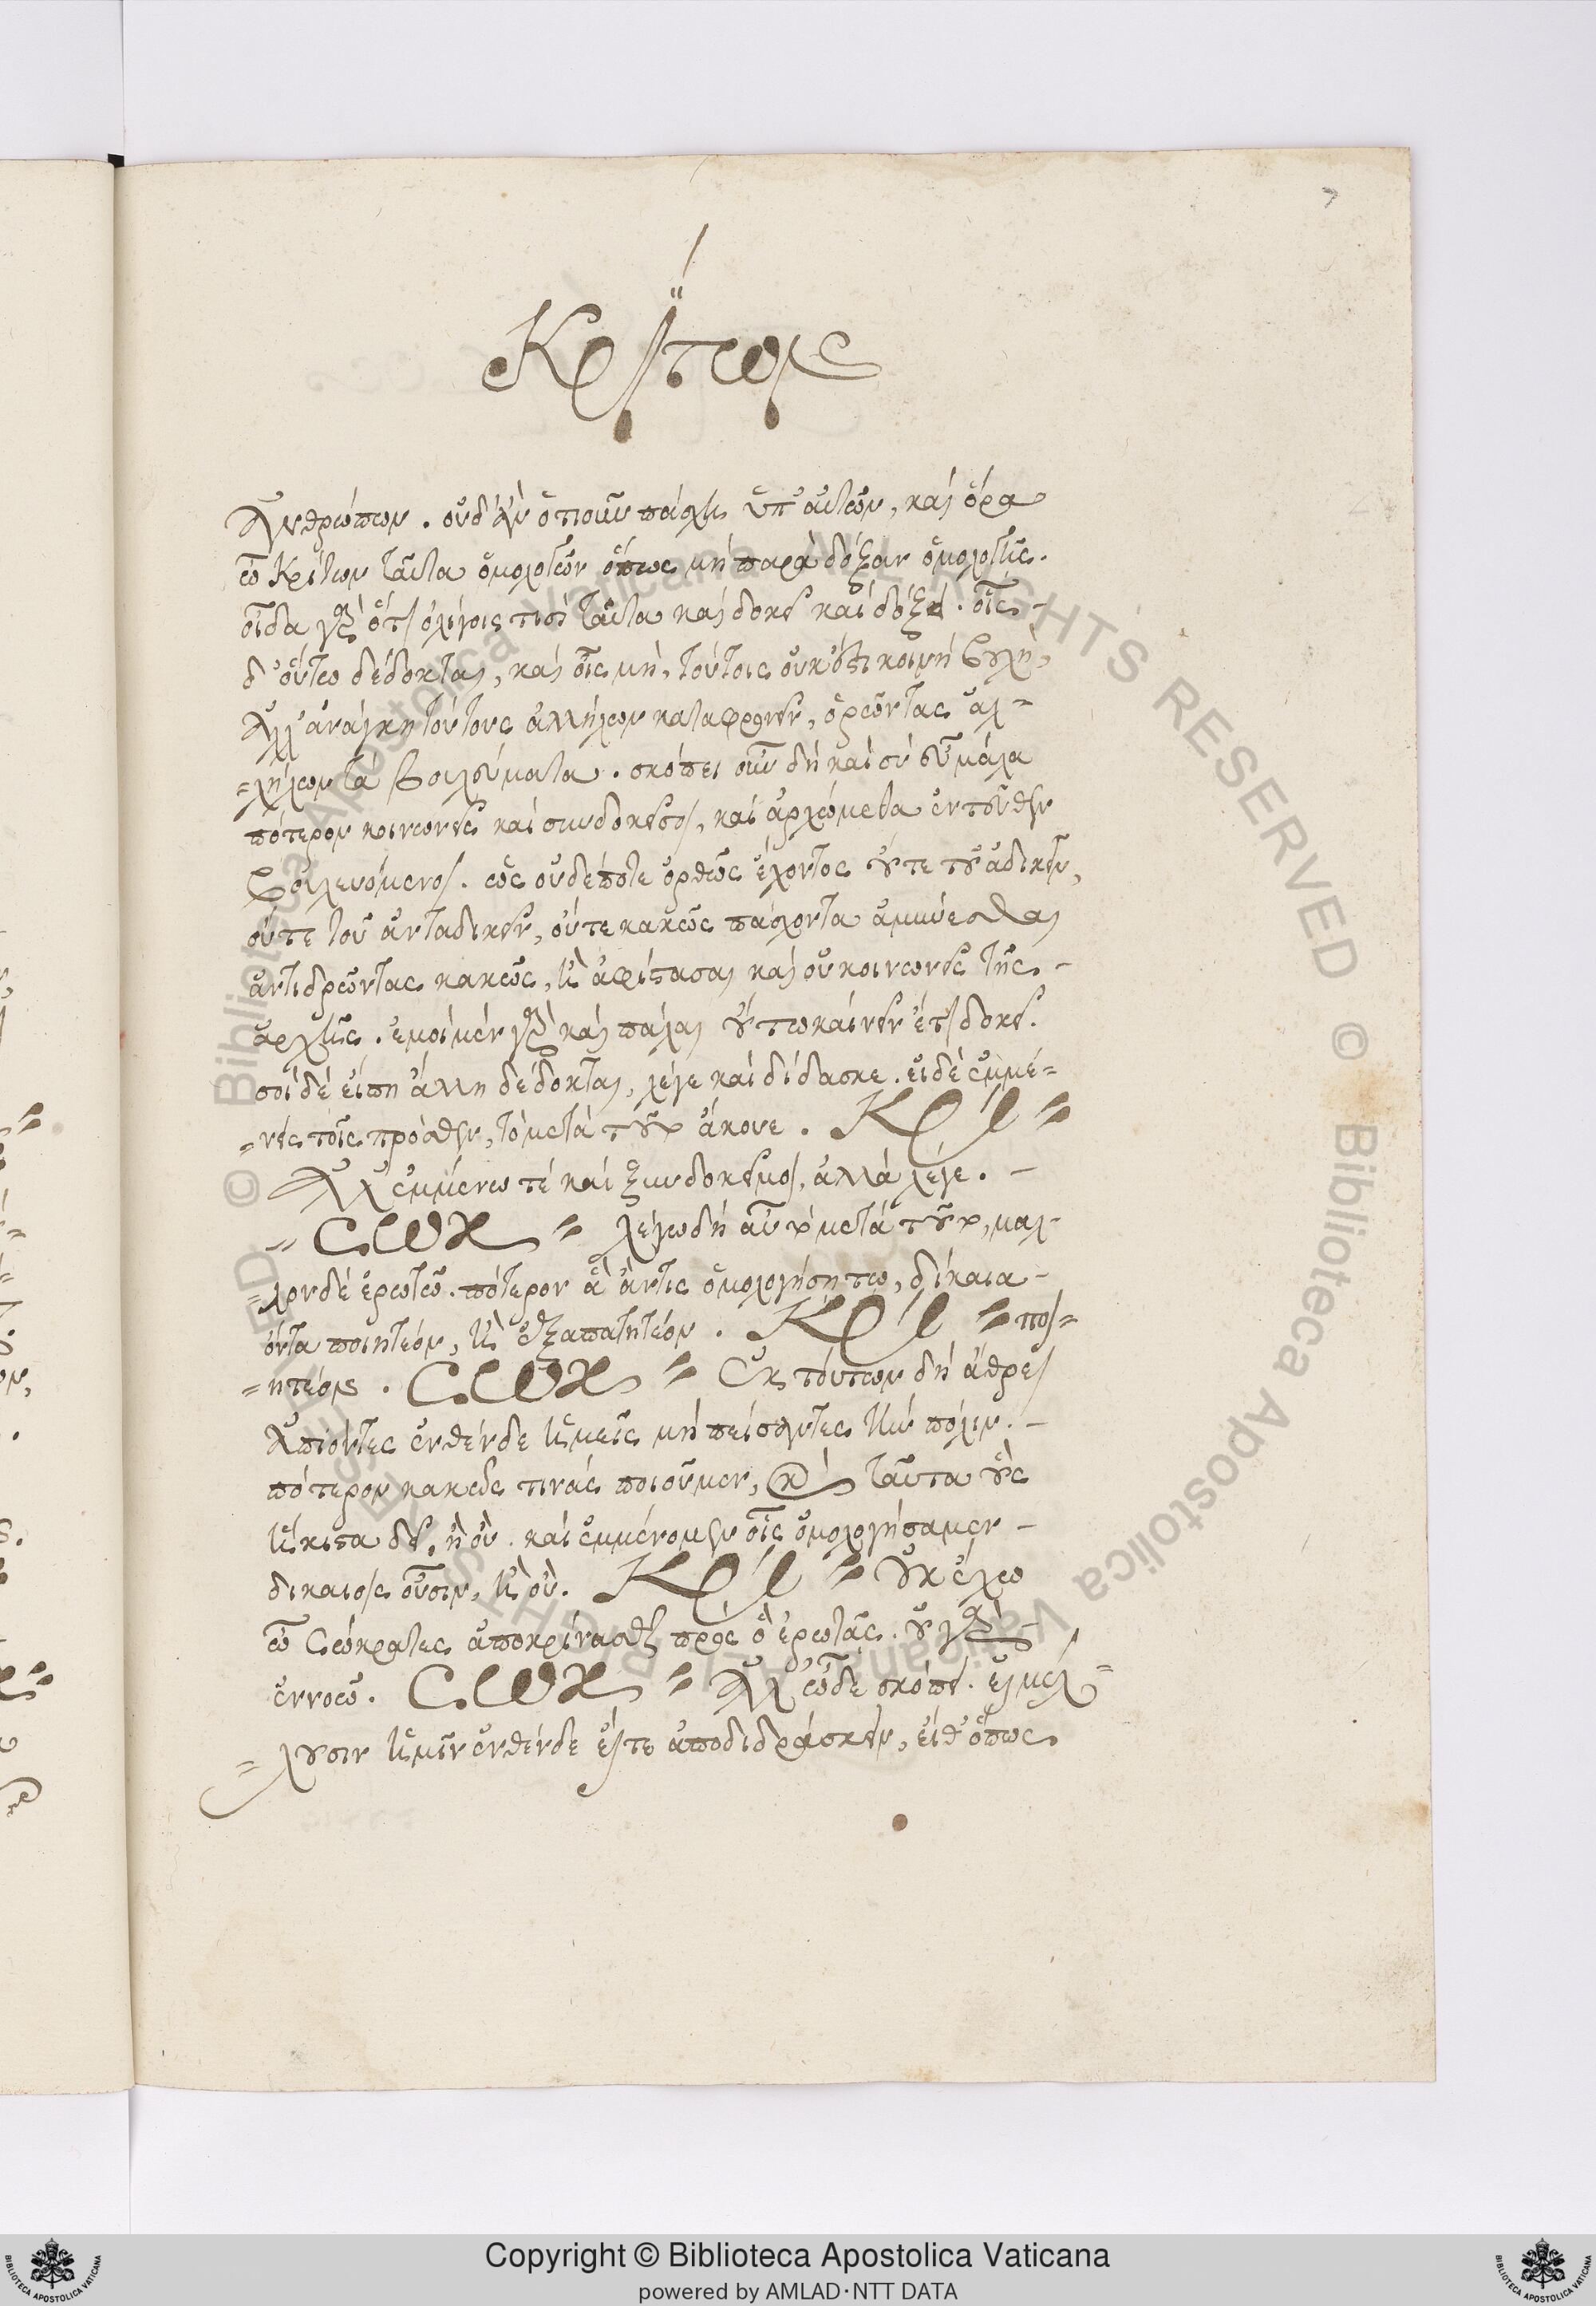 7
Κρίτων
Ἀνθρώπων. οὐδ' ἂν ὁτιοῦν πάσχῃ ὑπ' αὐτῶν, καὶ ὅρα
ὦ Κρίτων ταῦτα ὁμολογῶν ὅπως μὴ παρὰ δόξαν ὁμολογῇς.
οἶδα γὰρ ὅτι ὀλίγοις τισὶ ταῦτα καὶ δοκεῖ καὶ δόξει. οἷς
δ' οὕτω δέδοκται, καὶ οἷς μὴ, τούτοις οὐκ ἔστι κοινὴ βουλὴ,
Ἀλλ' ἀνάγκη τούτους ἀλλήλων καταφρονεῖν, ὁρῶντας ἀλ=
=λήλων τὰ βουλεύματα. σκόπει οὖν δὴ καὶ σὺ εὖ μάλα
πότερον κοινωνεῖς καὶ συνδοκεῖ σοι, καὶ ἀρχώμεθα ἐντεῦθεν
βουλευόμενοι. ὡς οὐδέποτε ὀρθῶς ἔχοντος οὔτε τοῦ ἀδικεῖν,
οὔτε τοῦ ἀνταδικεῖν, οὔτε κακῶς πάσχοντα ἀμύνεσθαι
ἀντιδρῶντας κακῶς, ἢ ἀφίστασαι καὶ οὐ κοινωνεῖς τῆς
ἀρχῆς. ἐμοὶ μὲν γὰρ καὶ πάλαι οὕτω καὶ νῦν ἔτι δοκεῖ.
σοὶ δὲ εἴ πῃ ἄλλῃ δέδοκται, λέγε καὶ δίδασκε. εἰ δὲ ἐμμέ=
=νεις τοῖς πρόσθεν, τὸ μετὰ τοῦτο ἄκουε. ΚΡΙ
Ἀλλ' ἐμμένω τὲ καὶ ξυνδοκεῖ μοι, ἀλλὰ λέγε.
ΣΩΚ λέγω δὴ αὖ τὸ μετὰ τοῦτο, μαλ=
=λον δὲ ἐρωτῶ. πότερον ἃ ἄν τις ὁμολογήσῃ τῳ, δίκαια
ὄντα ποιητέον, ἢ ἐξαπατητέον. ΚΡΙ ποι=
=ητέον. ΣΩΚ Ἐκ τούτων δὴ ἄθρει
Ἀπιόντες ἐνθένδε ἡμεῖς μὴ πείσαντες τὴν πόλιν.
πότερον κακῶς τινάς ποιοῦμεν, καὶ ταῦτα οὓς
ἥκιστα δεῖ, ἢ οὐ. καὶ ἐμμένομεν οἷς ὁμολογήσαμεν
δικαίοις οὖσιν, ἢ οὔ. ΚΡΙ Οὐκ ἔχω
ὦ Σώκρατες ἀποκρίνασθαι πρὸς ὃ ἐρωτᾷς. οὐ γὰρ
ἐννοῶ. ΣΩΚ Ἀλλ' ὧδε σκόπει. εἰ μέλ=
=λουσιν ἡμῖν ἐνθένδε εἴτε ἀποδιδράσκειν, εἴθ' ὅπως
© Biblioteca Apostolica Vaticana ALL RIGHTS RESERVED © Biblioteca Apostolica Vaticana ALL RIGHTS RESERVED
Copyright © Biblioteca Apostolica Vaticana
powered by AMLAD·NTT DATA
BIBLIOTECA APOSTOLICA VATICANA
BIBLIOTECA APOSTOLICA VATICANA